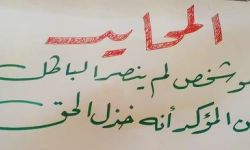 المحايد
شخص لم ينصر الباطل
المؤكد أنه خذل الحق